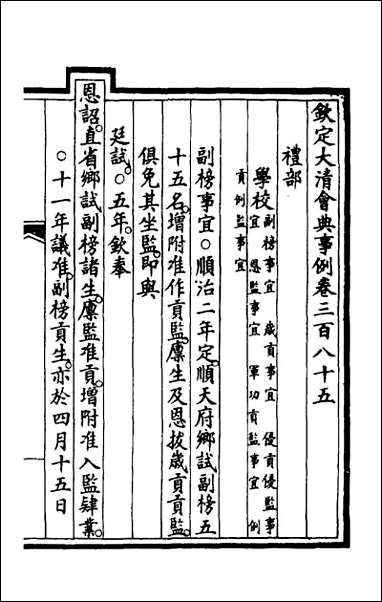 欽定大清會典事例卷三百八十五
禮部
學校副榜事宜 歲貢事宜 優貢優監事
宜 恩監事宜 軍功貢監事宜 例
貢例監事宜
副榜事宜○順治二年定。順天府鄉試副榜五
十五名。增附准作貢監。廩生及恩拔歲貢貢監。
俱免其坐監。即與
廷試。○五年。欽奉
恩詔。直省鄉試副榜諸生。廩監准貢。增附准入監肄業。
○十一年議准。副榜貢生。亦於四月十五日